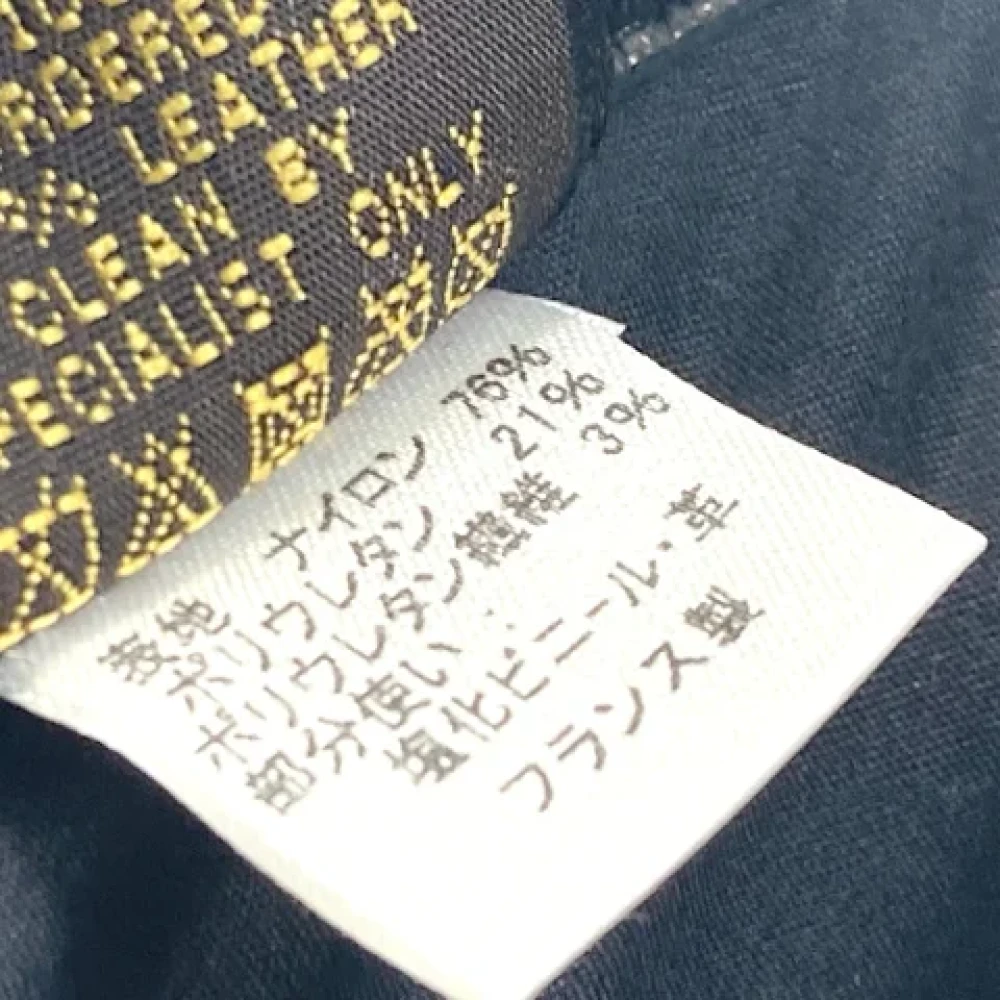 LEATHER
CLEAN BY
SPECIALIST ONLY
表地 ナイロン 76%
ポリウレタン 21%
ポリウレタン繊維 3%
部分使い
塩化ビニール・革
フランス製